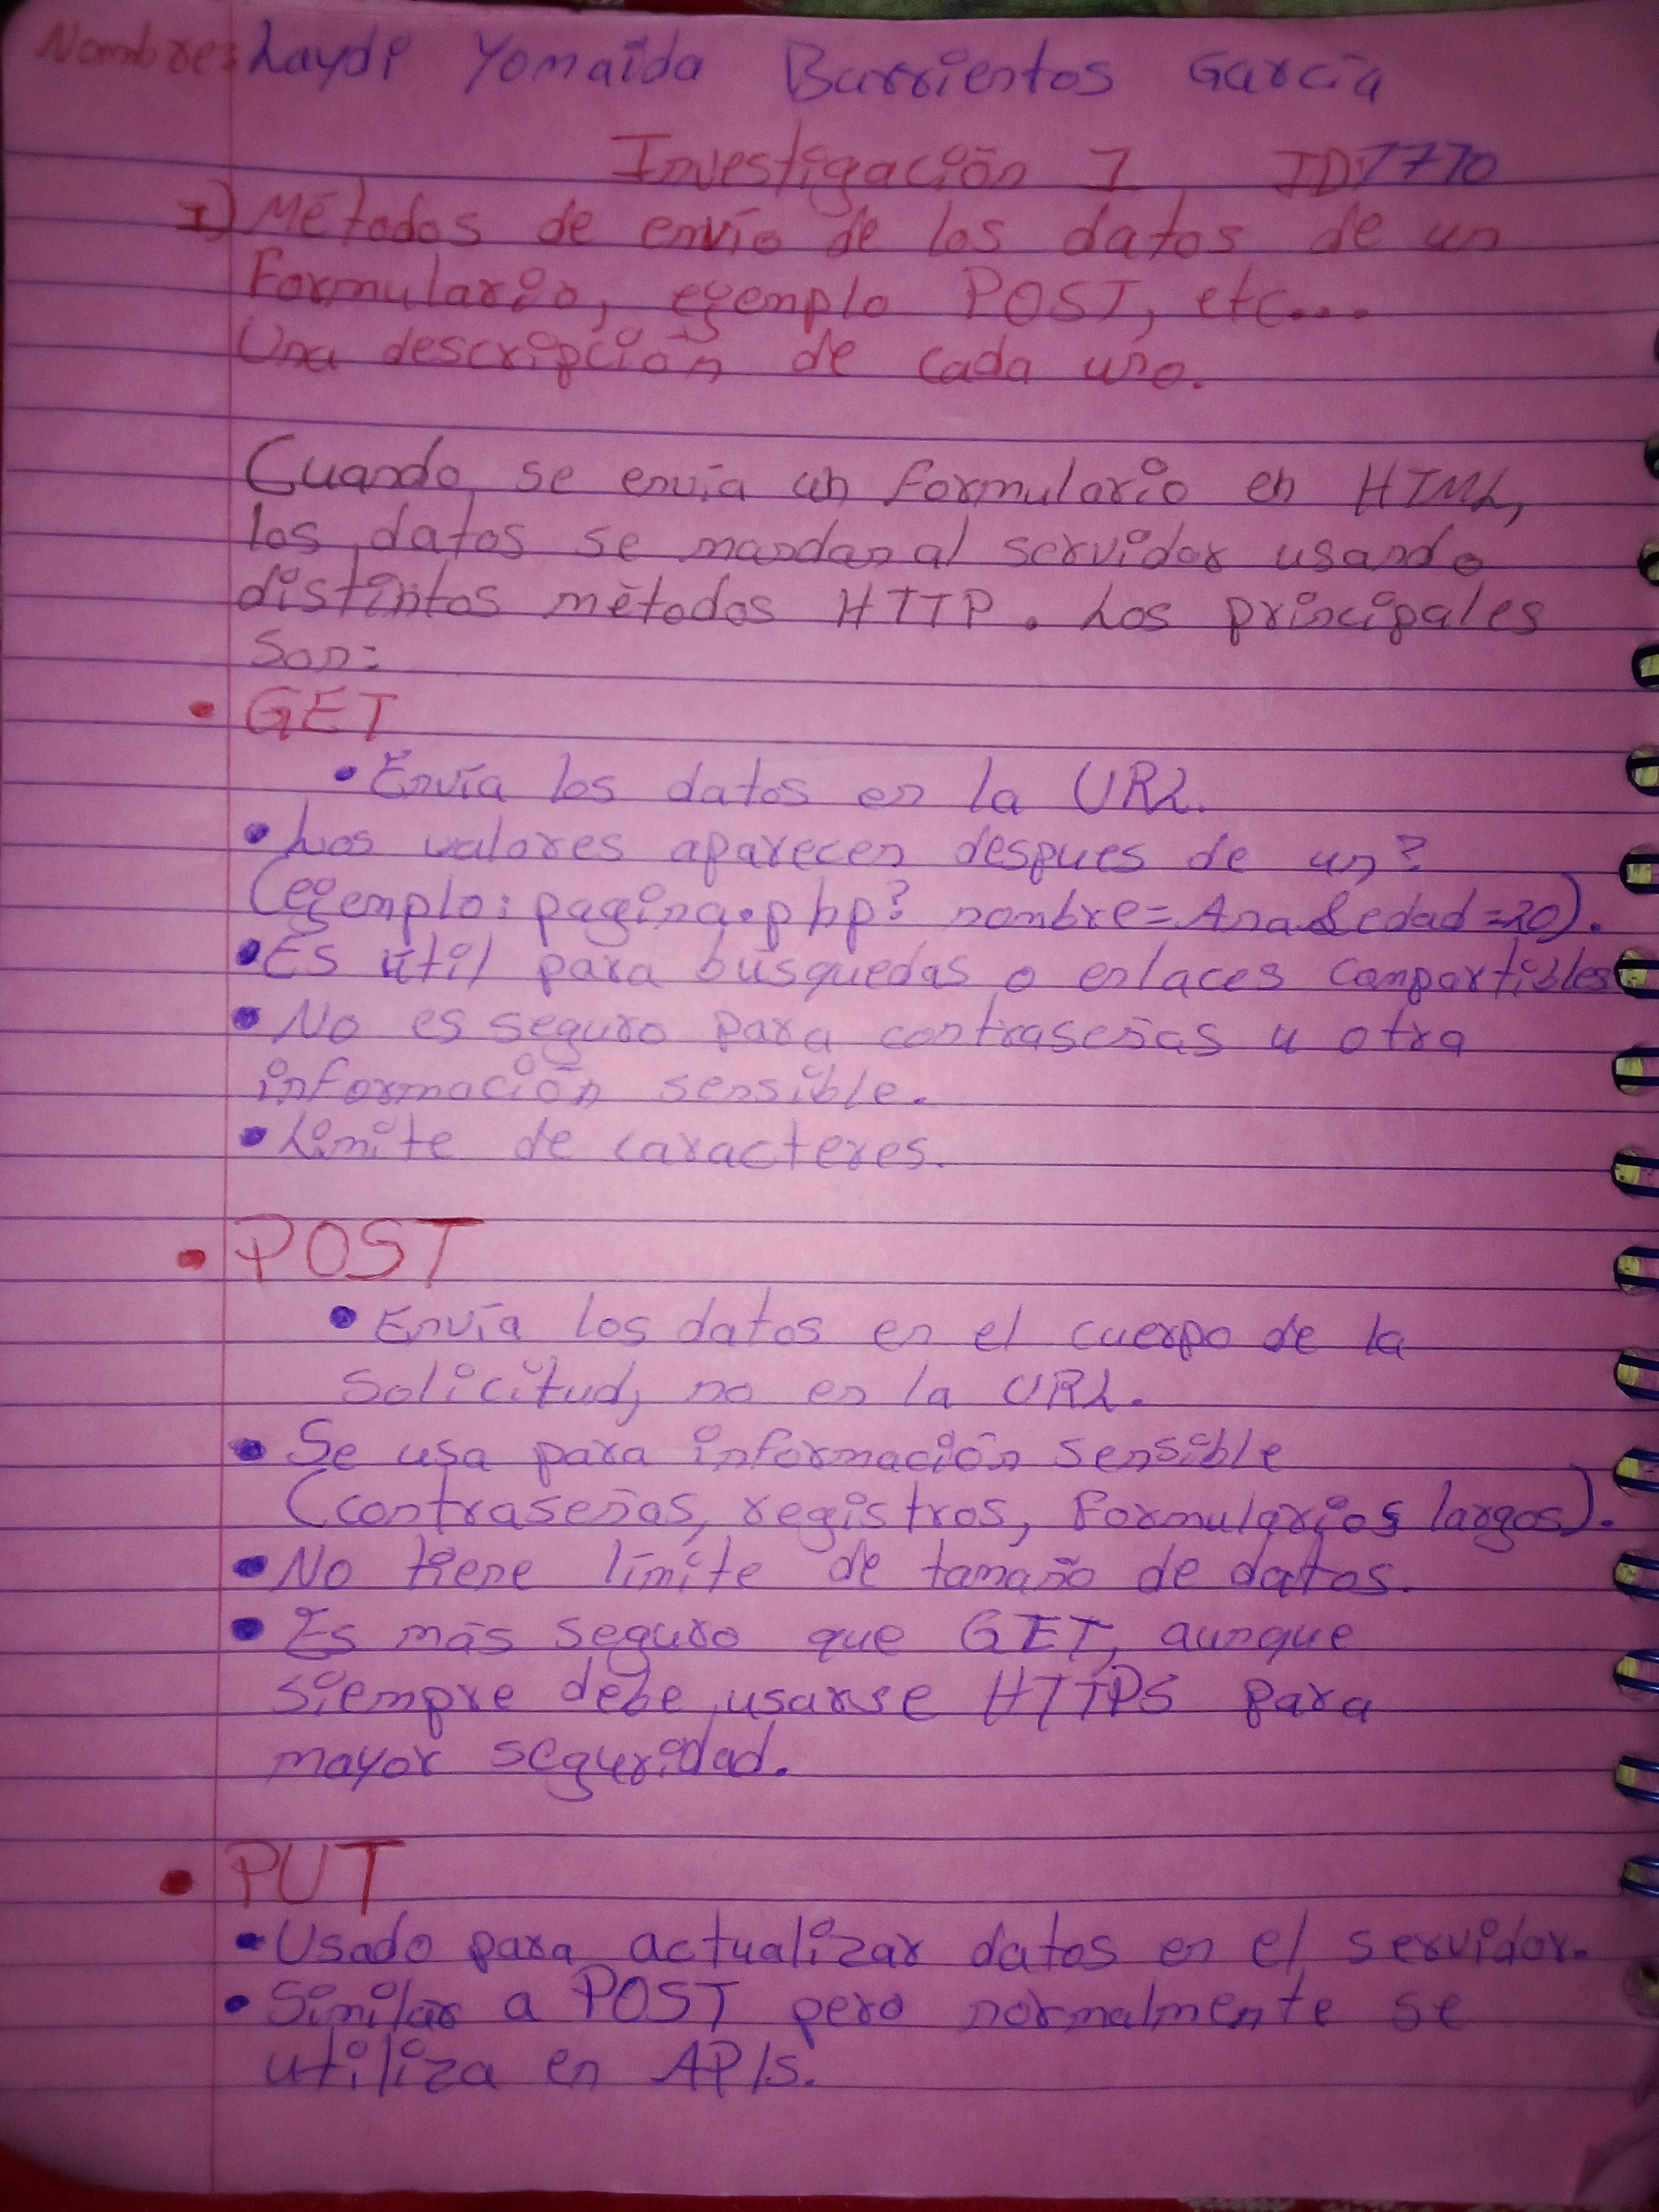 Nombre: Laydi Yomaida Barrientos García
Investigación 1 ID7770
1) Métodos de envío de los datos de un
Formulario, ejemplo POST, etc...
Una descripción de cada uno.
Cuando se envía un formulario en HTML,
los datos se mandan al servidor usando
distintos métodos HTTP. Los principales
son:
• GET
• Envía los datos en la URL.
• Los valores aparecen despues de un ?
(ejemplo: pagina.php? nombre=Ana&edad=20).
• Es útil para búsquedas o enlaces compartibles
• No es seguro para contraseñas u otra
información sensible.
• Límite de caracteres.
• POST
• Envía los datos en el cuerpo de la
solicitud, no en la URL.
• Se usa para información sensible
(contraseñas, registros, formularios largos).
• No tiene límite de tamaño de datos.
• Es más seguro que GET, aunque
siempre debe usarse HTTPS para
mayor seguridad.
• PUT
• Usado para actualizar datos en el servidor.
• Similar a POST pero normalmente se
utiliza en APIs.